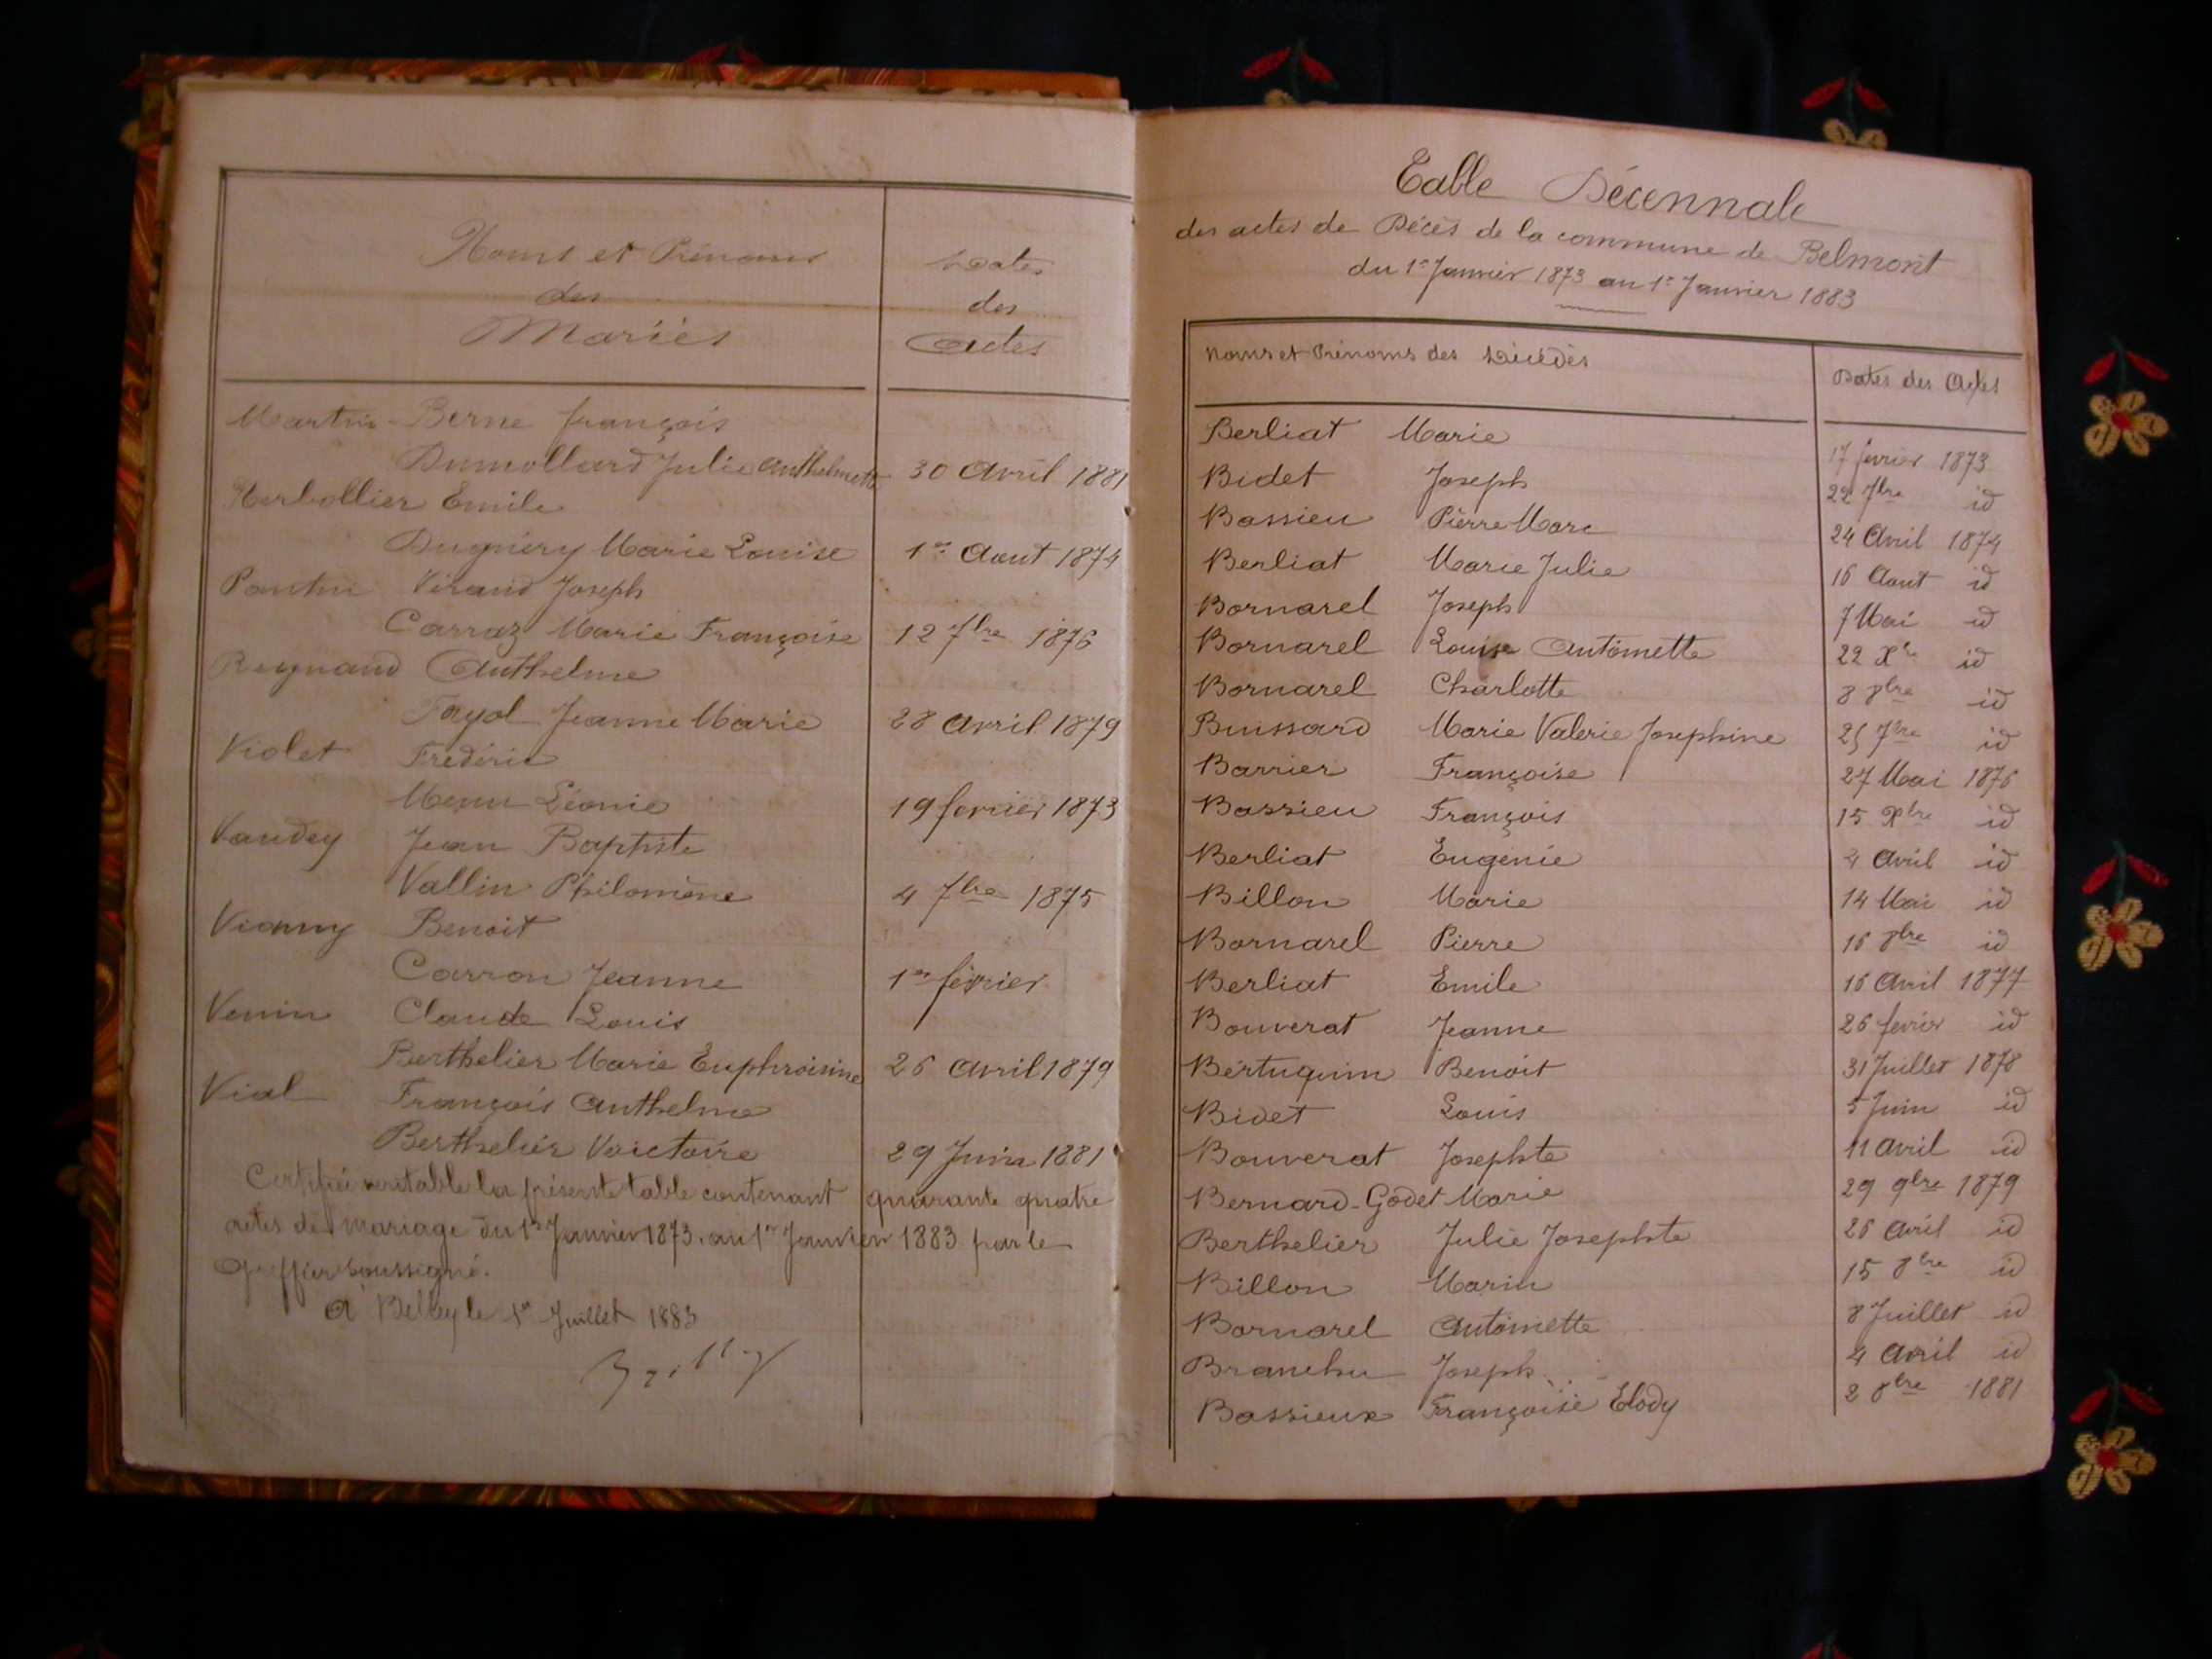 Noms et Prénoms
des
Mariés
Dates
des
Actes
Martin-Berne françois
Dumollard Julie Anthelmette 30 Avril 1881
Herbollier Emile
Dugniéry Marie Louise 1er Aout 1874
Pantin Virand Joseph
Carraz Marie Françoise 12 7bre 1876
Reynaud Anthelme
Fayol Jeanne Marie 28 Avril 1879
Violet Frédéric
Léonie 19 fevrier 1873
Vaudey Jean Baptiste
Vallin Philomène 4 7bre 1875
Vianny Benoit
Carron Jeanne 1er février
Venin Claude Louis
Berthelier Marie Euphroisine 26 Avril 1879
Vial François Anthelme
Berthelier Voictoire 29 Juin 1881
Certifié veritable la présente table contenant quarante quatre
actes de mariage du 1er Janvier 1873 au 1er Janvier 1883 par le
Greffier soussigné.
A Belley le 1er Juillet 1883
Table Décennale
des actes de Décès de la commune de Belmont
du 1er Janvier 1873 au 1er Janvier 1883
Noms et Prénoms des Décédés Dates des Actes
Berliat Marie 17 fevrier 1873
Bidet Joseph 22 7bre id
Bassieu Pierre Marc 24 Avril 1874
Berliat Marie Julie 16 Aout id
Bornarel Joseph 7 Mai id
Bornarel Louise Antoinette 22 Xbre id
Bornarel Charlotte 8 8bre id
Buissard Marie Valerie Josephine 25 7bre id
Barrier Françoise 27 Mai 1876
Bassieu François 15 Xbre id
Berliat Eugénie 4 Avril id
Billon Marie 14 Mai id
Bornarel Pierre 16 8bre id
Berliat Emile 16 Avril 1877
Bouverat Jeanne 26 fevrier id
Bertuquim Benoit 31 Juillet 1878
Bidet Louis 5 Juin id
Bouverat Josephte 11 Avril id
Bernard-Godet Marie 29 9bre 1879
Berthelier Julie Josephte 26 Avril id
Billon Marin 15 8bre id
Bornarel Antoinette 8 Juillet id
Branchu Joseph 4 Avril id
Bassieux Françoise Elody 2 8bre 1881